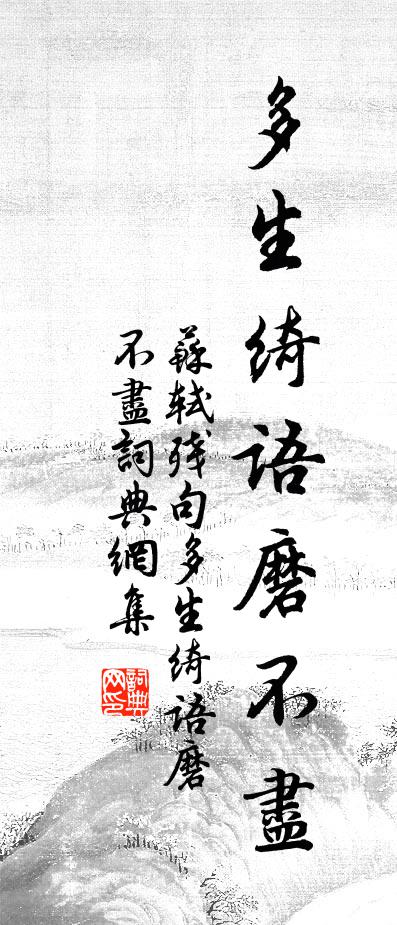 多生綺語磨不盡
蘇軾殘句多生綺語磨
不盡詞典網集
詞典
网印